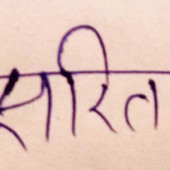 सरित